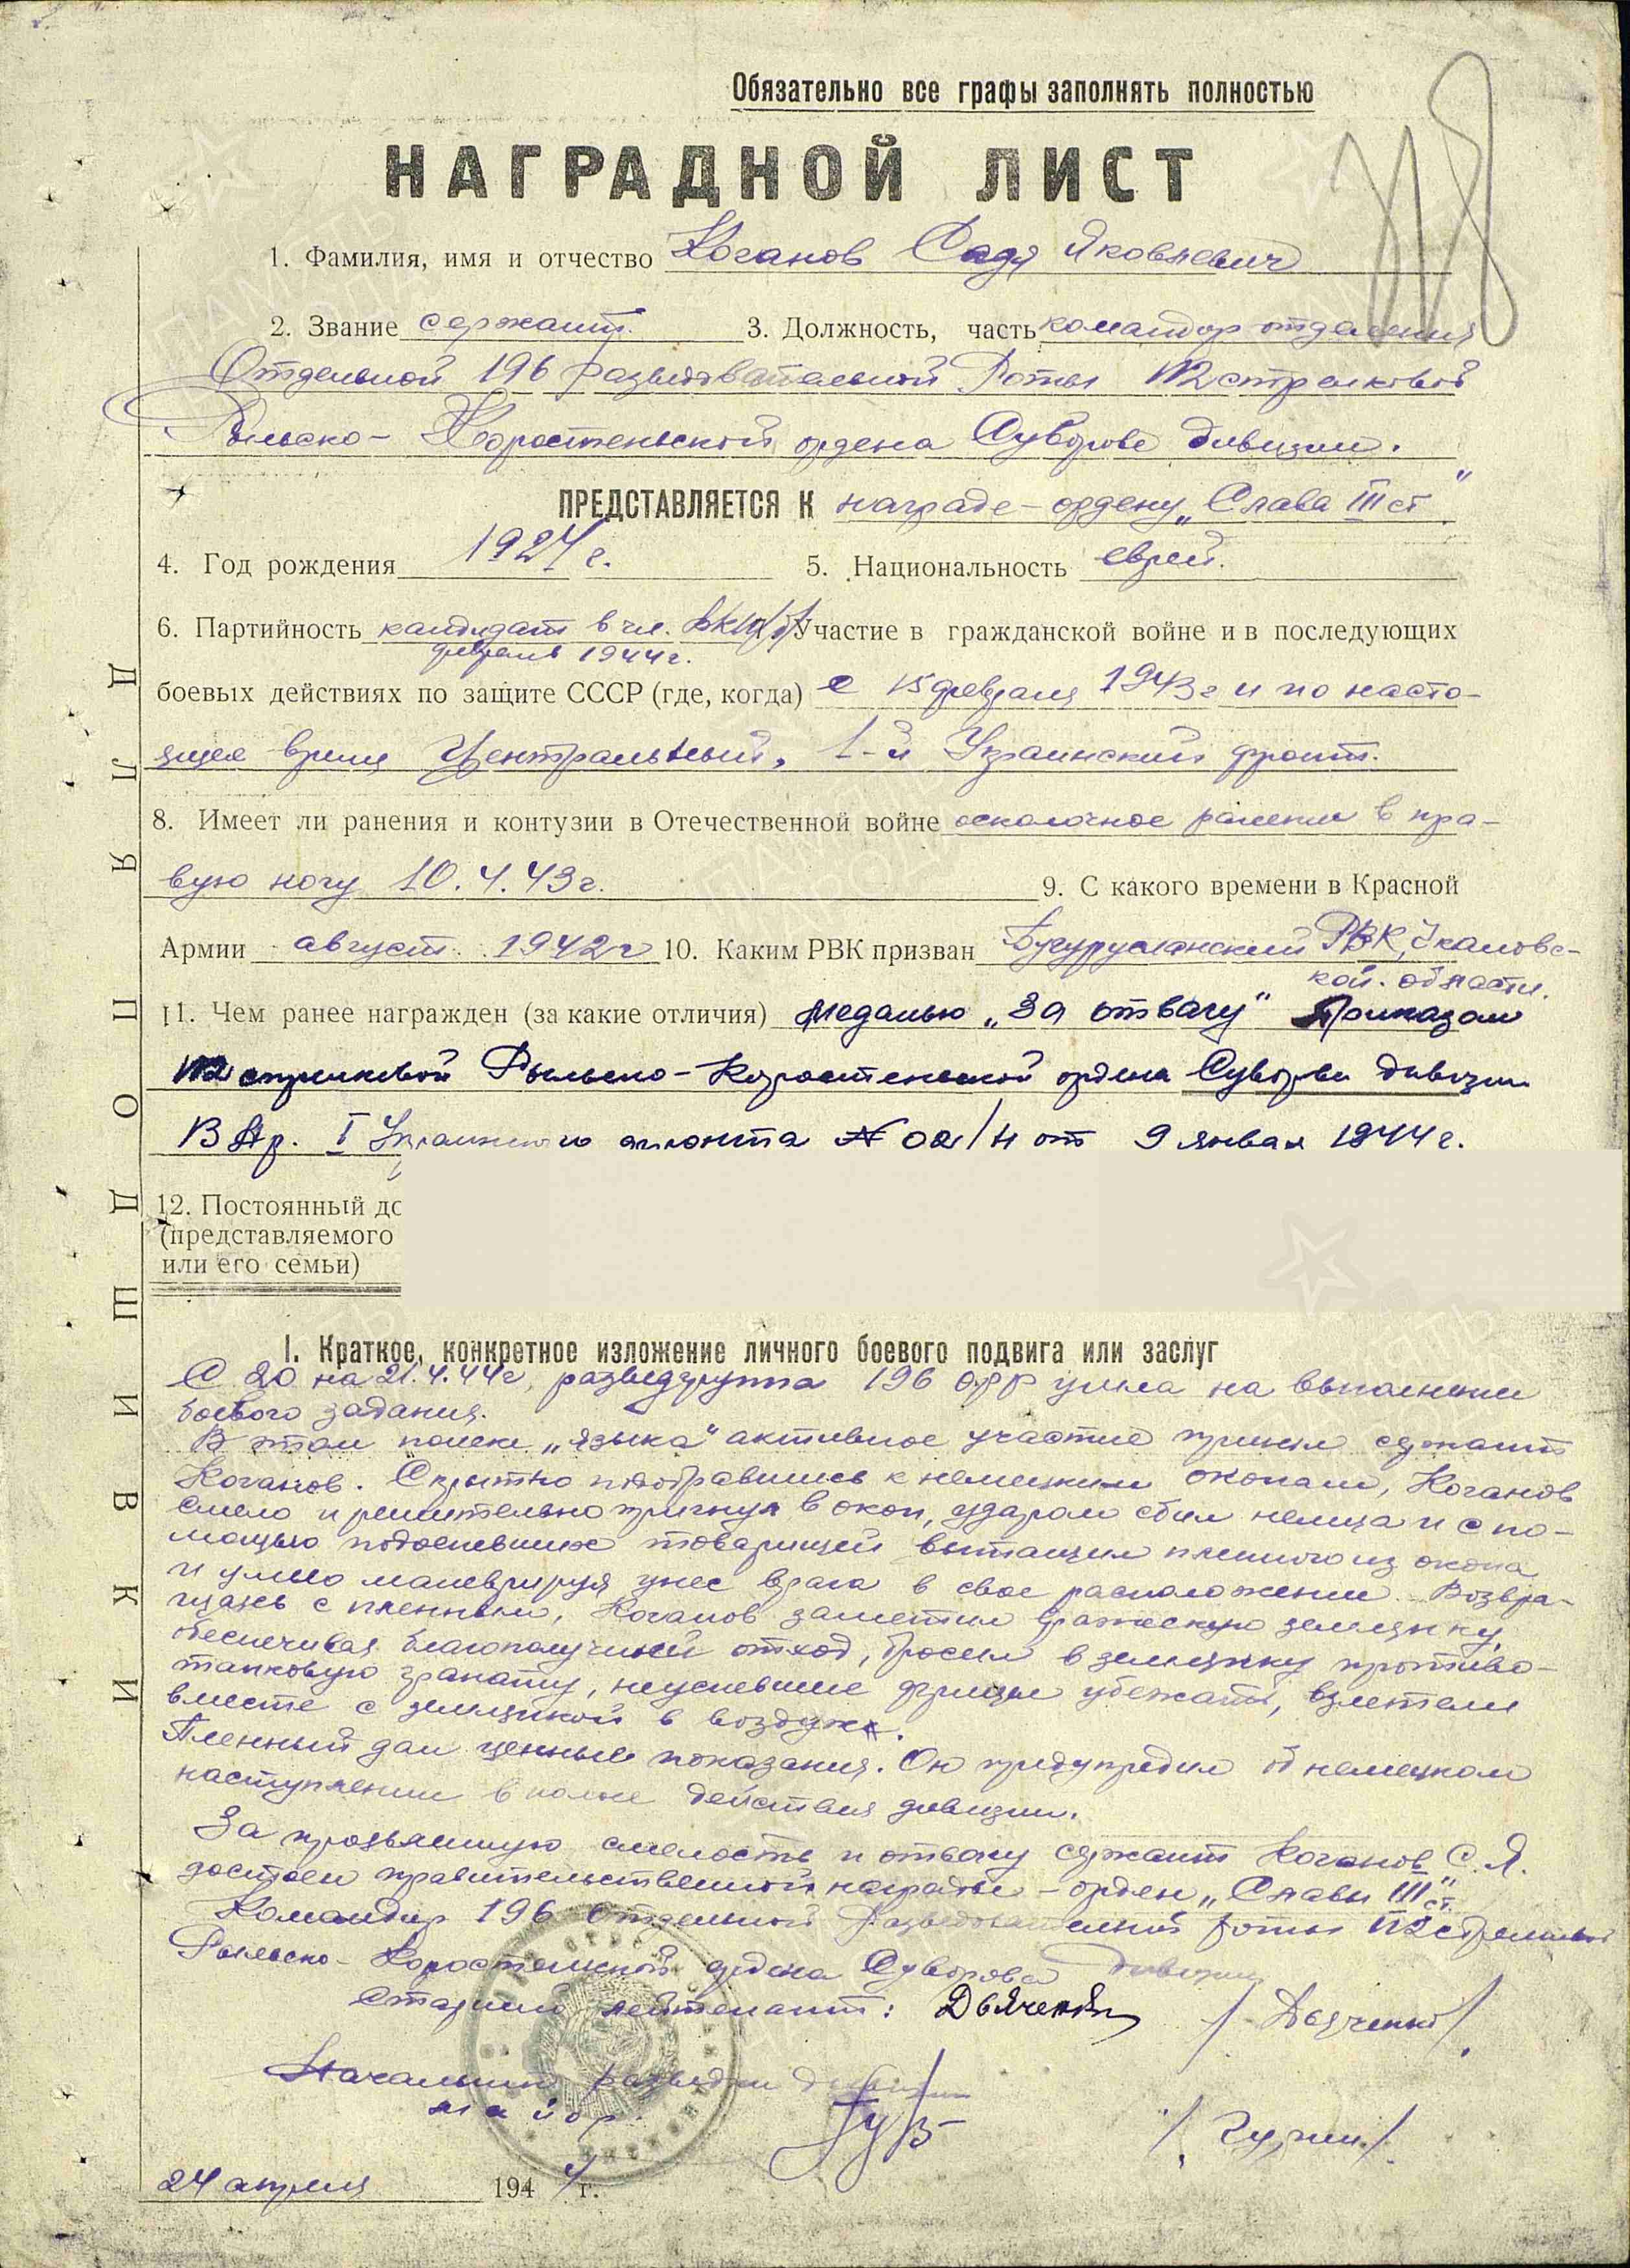 Обязательно все графы заполнять полностью
НАГРАДНОЙ ЛИСТ
1. Фамилия, имя и отчество Коганов Садя Яковлевич
2. Звание сержант. 3. Должность, часть командир отделения
Отдельной 196 разведовательной Роты 112 стрелковой
Рыльско-Коростеньской ордена Суворова дивизии.
ПРЕДСТАВЛЯЕТСЯ К награде-ордену „Слава III ст"
4. Год рождения 1924 г. 5. Национальность еврей.
6. Партийность кандидат в чл. ВКП(б) Участие в гражданской войне и в последующих
февраль 1944г.
боевых действиях по защите СССР (где, когда) с 15 февраля 1943г и по насто-
ящее время Центральный, 1-й Украинский фронт.
8. Имеет ли ранения и контузии в Отечественной войне осколочное ранение в пра-
вую ногу 10.4.43г. 9. С какого времени в Красной
Армии август 1942г 10. Каким РВК призван Бугурусланский РВК, Чкаловс-
кой области.
11. Чем ранее награжден (за какие отличия) Медалью „За отвагу" Приказом
112 стрелковой Рыльско-Коростеньской ордена Суворова дивизии
13 Ар. I Украинского фронта № 02/н от 9 января 1944г.
12. Постоянный до
(представляемого
или его семьи)
I. Краткое, конкретное изложение личного боевого подвига или заслуг
С 20 на 21.4.44г, разведгруппа 196 ОРР ушла на выполнение
боевого задания.
В этом поиске „языка" активное участие принял сержант
Коганов. Скрытно подобравшись к немецким окопам, Коганов
смело и решительно прыгнул в окоп, ударом сбил немца и с по-
мощью подоспевших товарищей вытащил пленного из окопа
и умело маневрируя унес врага в свое расположение. Возвра-
щаясь с пленным, Коганов заметил вражескую землянку,
обеспечивая благополучный отход, бросил в землянку противо-
танковую гранату, неуспевшие фрицы убежать, взлетели
вместе с землянкой в воздух.
Пленный дал ценные показания. Он предупредил об немецком
наступлении в полосе действия дивизии.
За проявленную смелость и отвагу сержант Коганов С.Я.
достоен правительственной награды - орден „Славы III ст"
Командир 196 Отдельной Разведовательной роты 112 стрелковой
Рыльско-Коростенской ордена Суворова дивизии
Старший лейтенант: Дьяченко /Дьяченко/
Начальник разведки дивизии
майор.
24 апреля 1944 г.
ДЛЯ ПОДШИВКИ